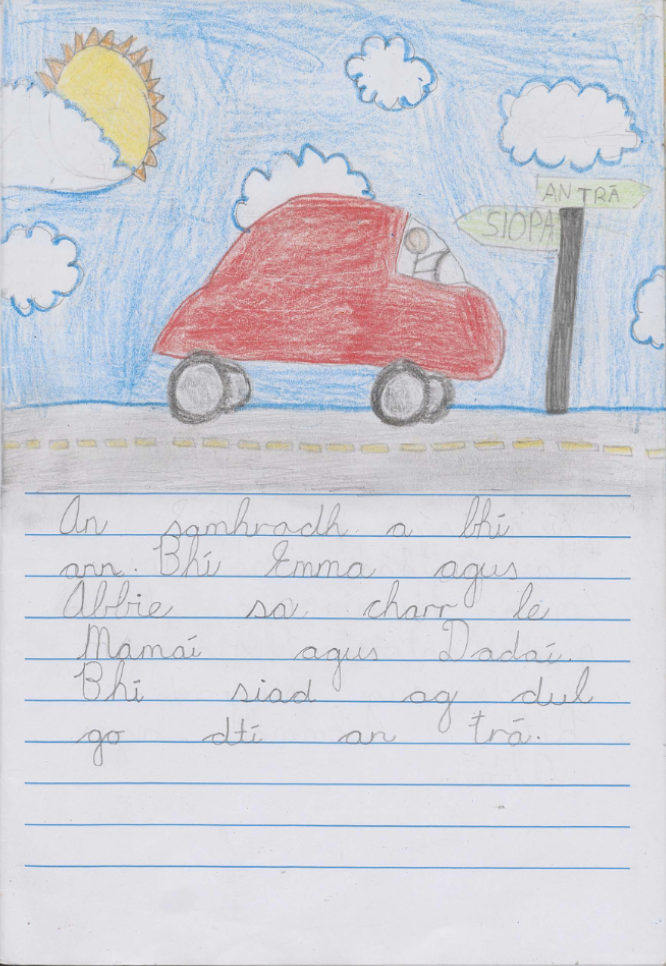 AN TRÁ
SIOPA
An samhradh a bhí
ann. Bhí Emma agus
Abbie sa charr le
Mamaí agus Dadaí.
Bhí siad ag dul
go dtí an trá.